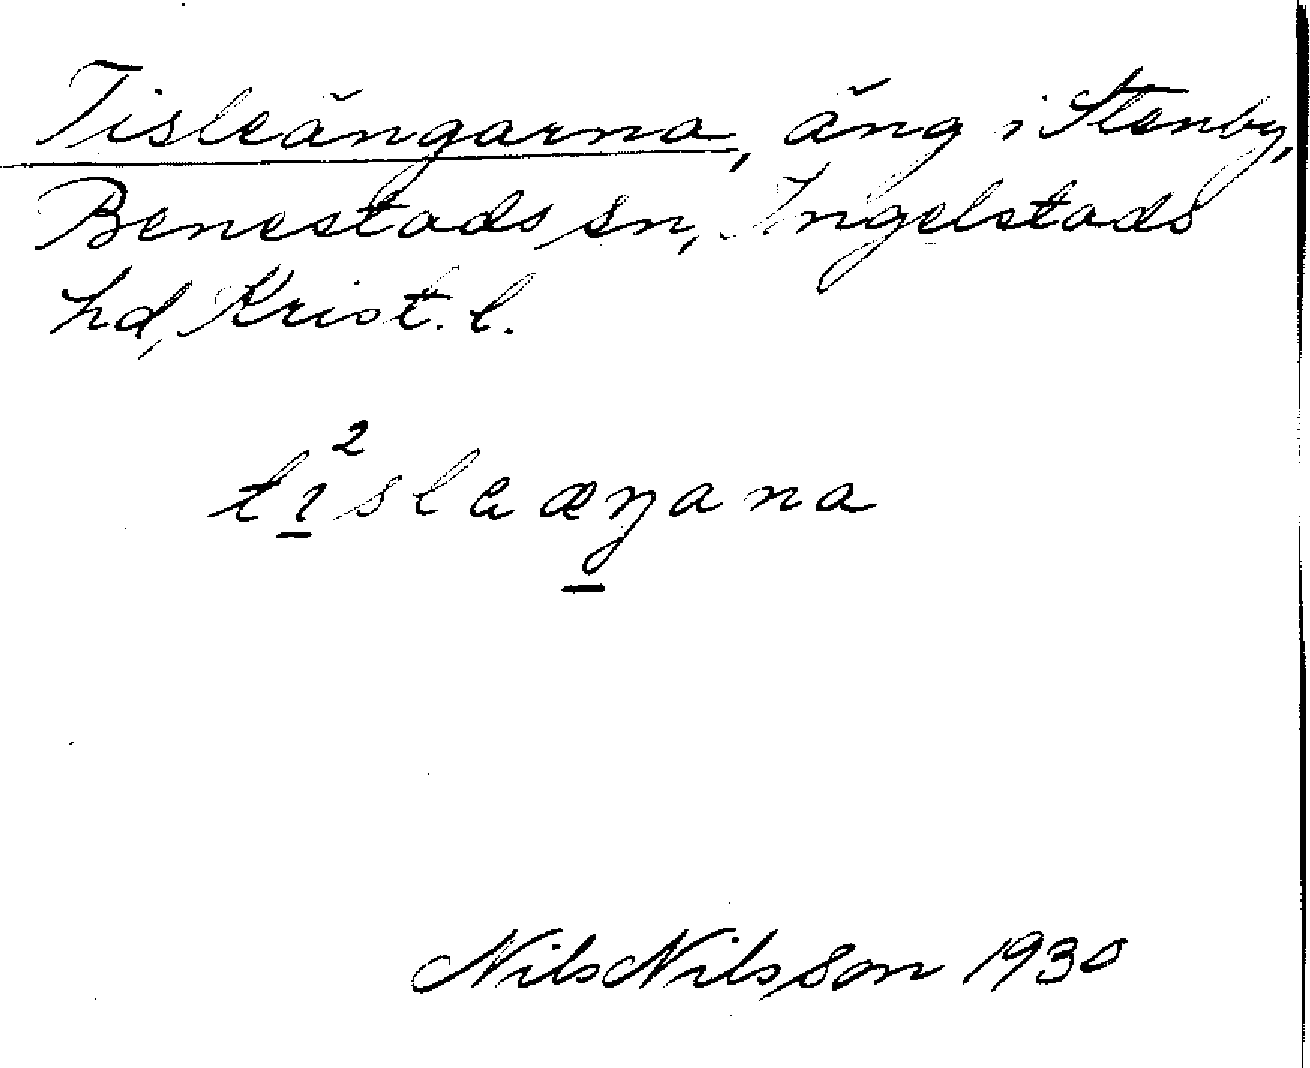 Tisleängarna, äng i Stenby,
Benestads sn, Ingelstads
hd, Krist. l.
tı²slɐæŋana
Nils Nilsson 1930